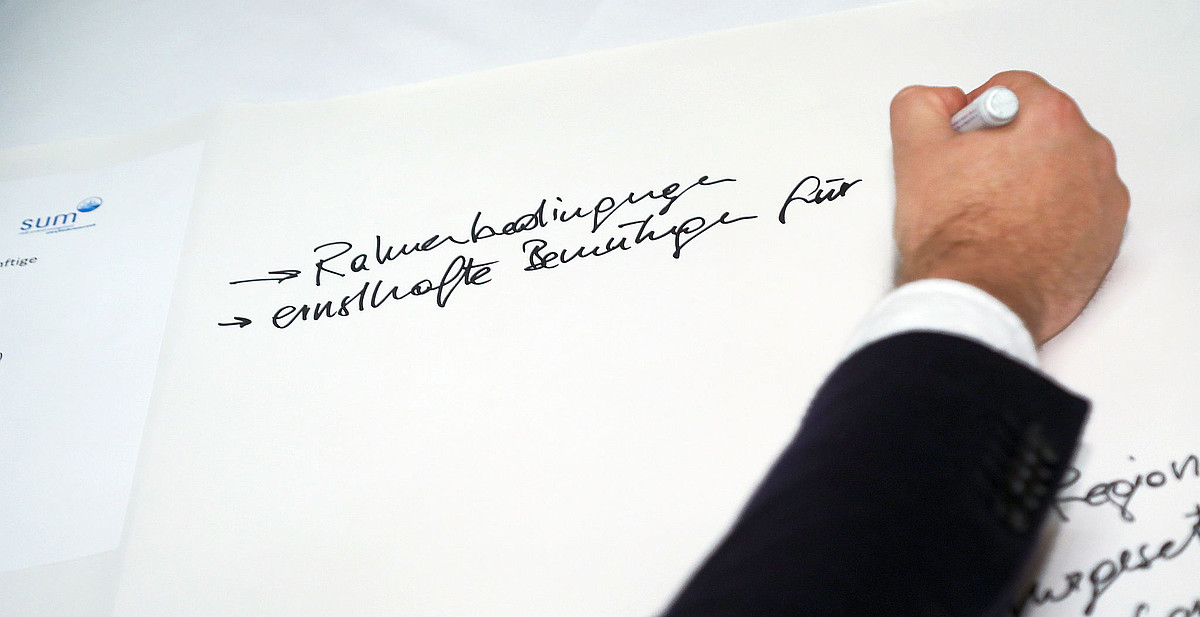 sum
nftige
→ Rahmenbedingungen
→ ernsthafte Bemühungen für
Region